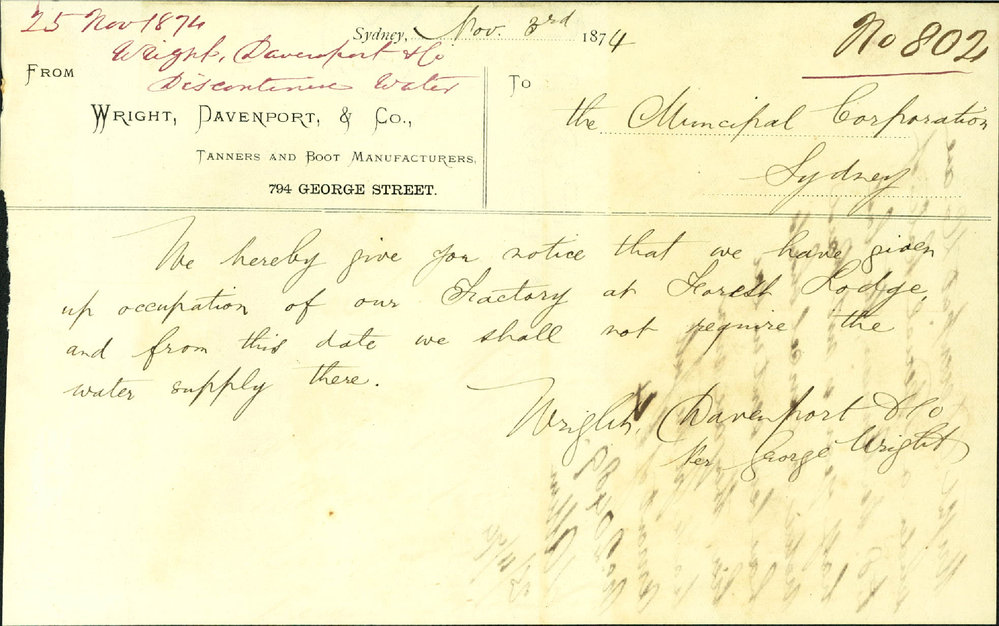 25 Nov 1874
Wright, Davenport & Co
Discontinue Water
Sydney, Nov. 3rd 1874
No 802
FROM
WRIGHT, DAVENPORT, & CO.,
TANNERS AND BOOT MANUFACTURERS,
794 GEORGE STREET.
TO
the Municipal Corporation
Sydney
We hereby give you notice that we have given
up occupation of our Factory at Forest Lodge,
and from this date we shall not require the
water supply there.
Wright, Davenport & Co
Per George Wright